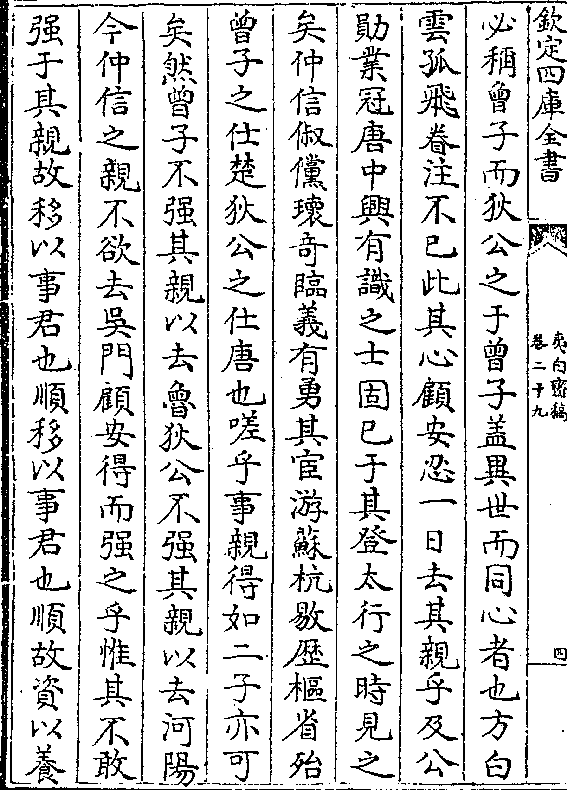 欽定四庫全書
夷白齋稿
卷二十九
四
必稱曾子而狄公之于曾子蓋異世而同心者也方白
雲孤飛眷注不已此其心顧安忍一日去其親乎及公
勛業冠唐中興有識之士固已于其登太行之時見之
矣仲信俶儻瓌奇臨義有勇其宦游蘇杭敭歴樞省殆
曾子之仕楚狄公之仕唐也嗟乎事親得如二子亦可
矣然曾子不强其親以去魯狄公不强其親以去河陽
今仲信之親不欲去吳門顧安得而强之乎惟其不敢
强于其親故移以事君也順移以事君也順故資以養